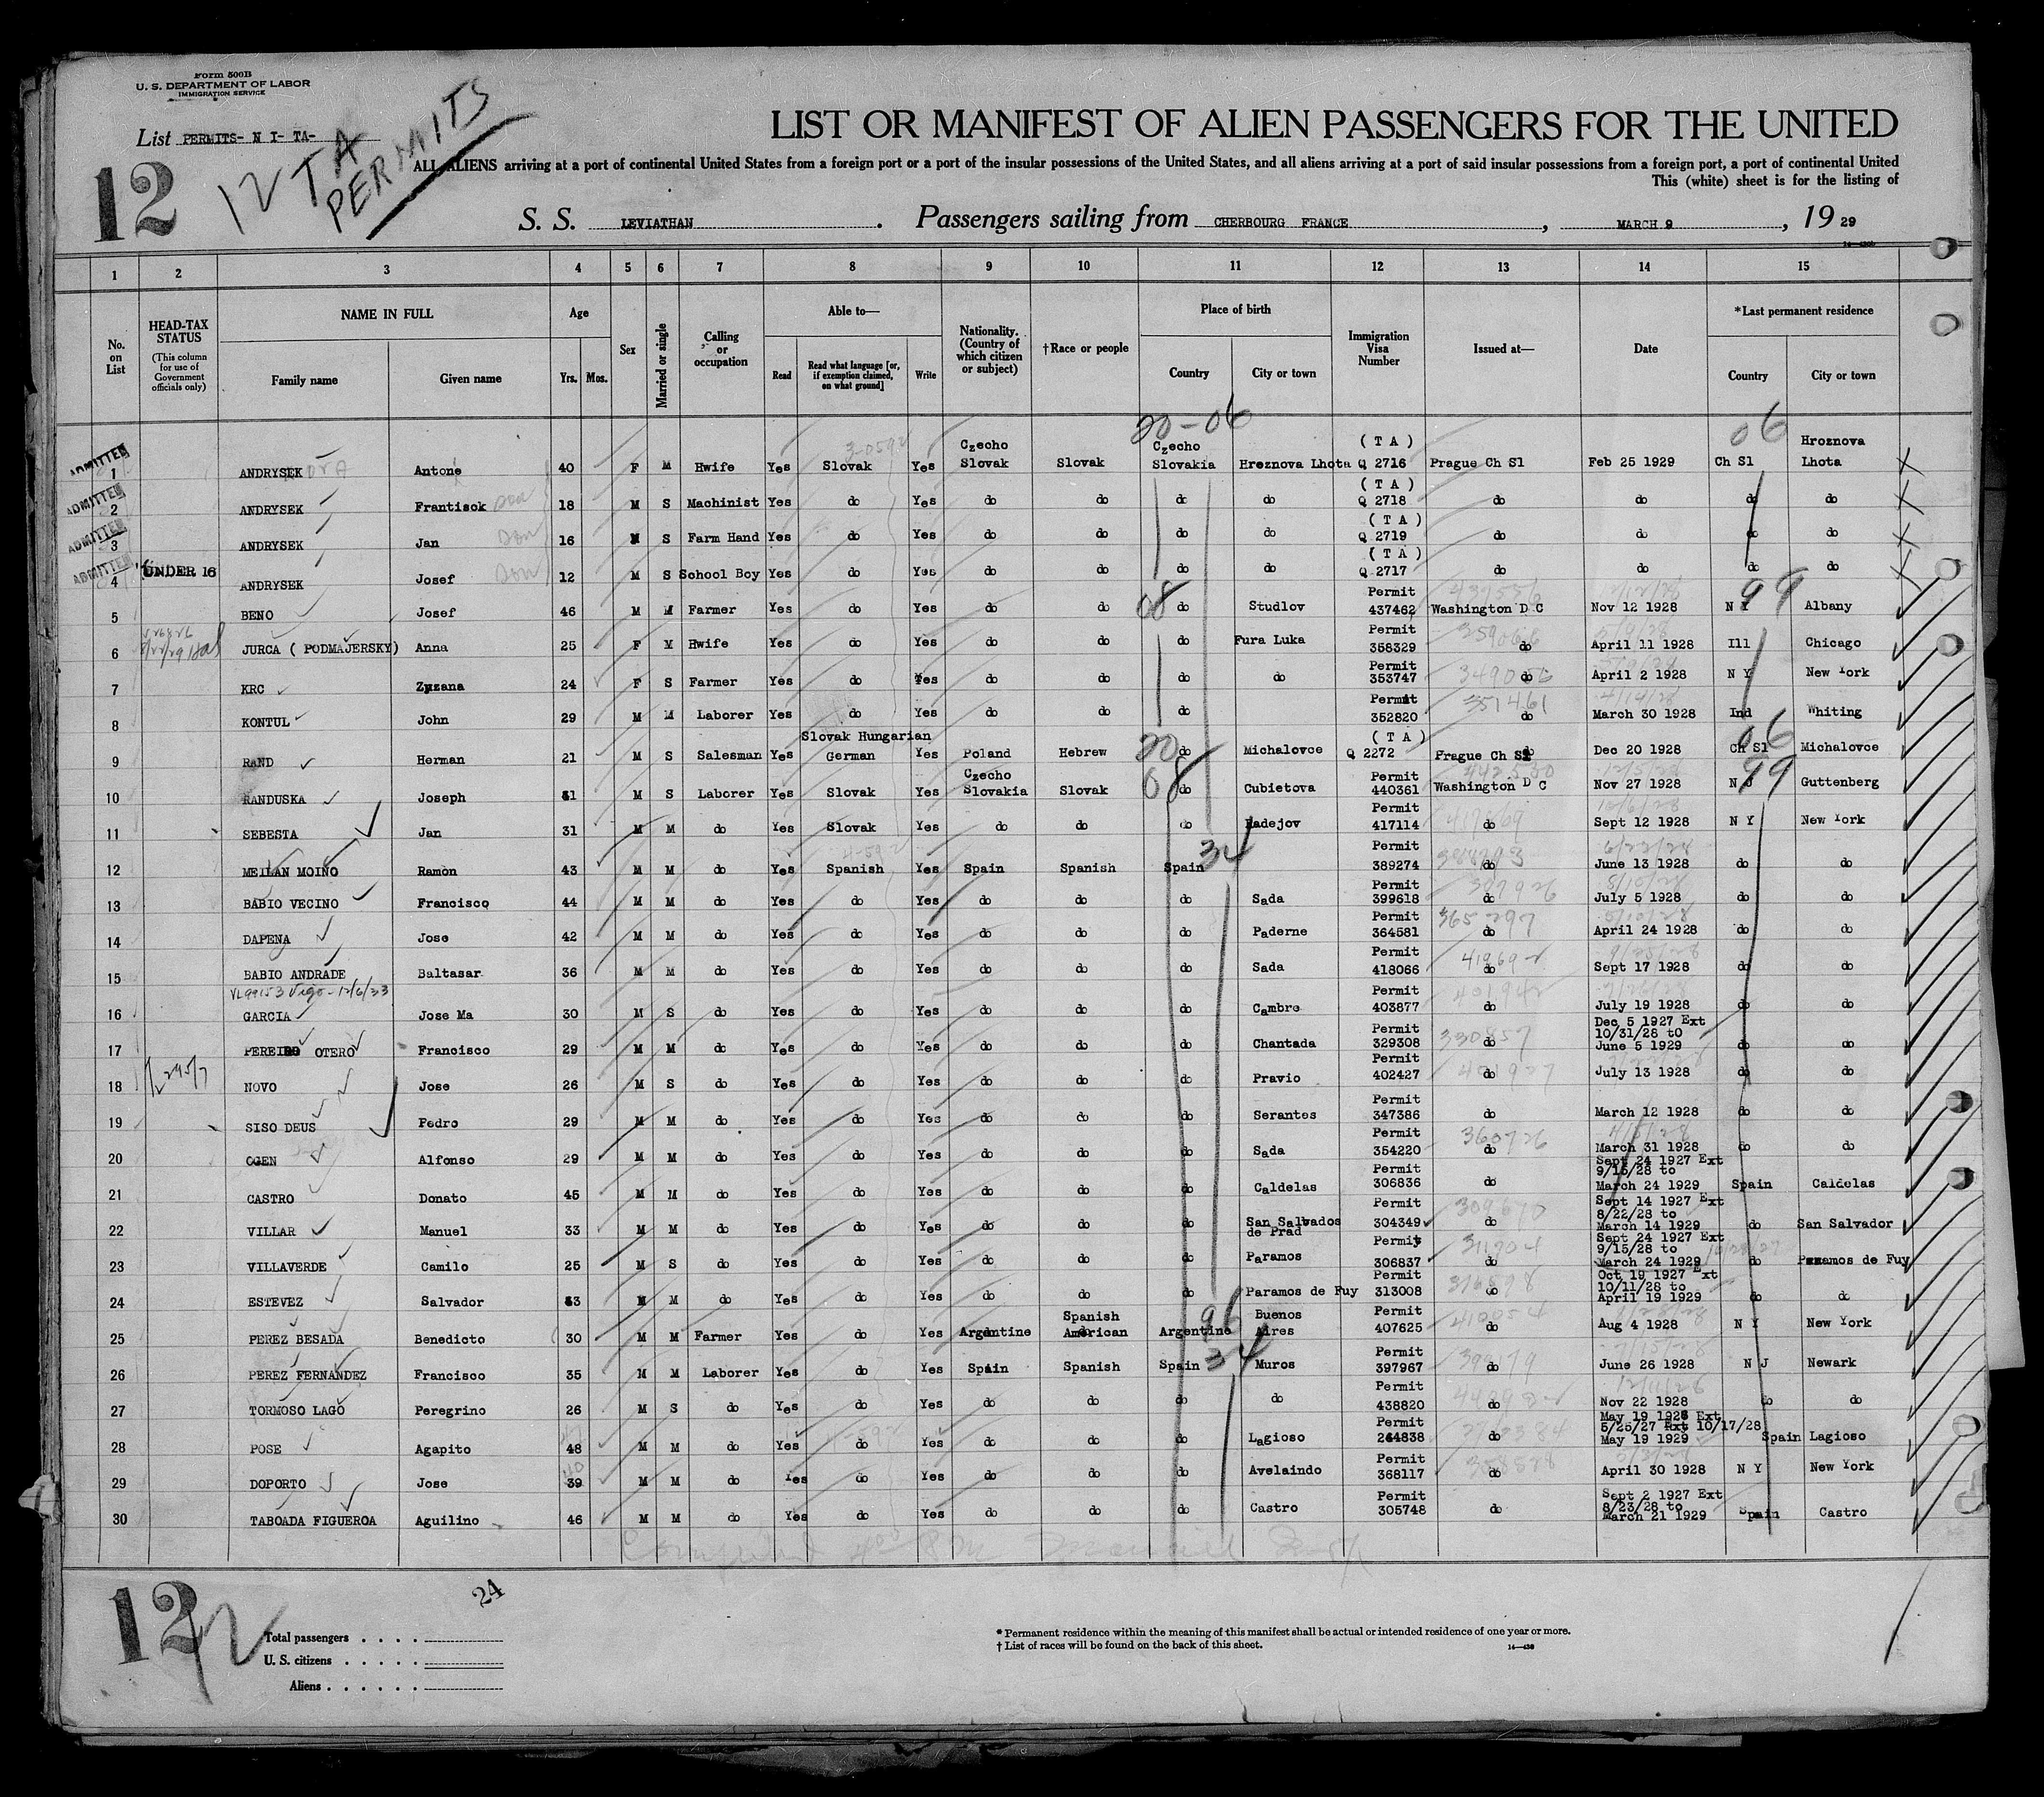 Form 500B
U. S. DEPARTMENT OF LABOR
IMMIGRATION SERVICE
List PERMITS- N I- TA-
12
12 TA
PERMITS
LIST OR MANIFEST OF ALIEN PASSENGERS FOR THE UNITED
ALL ALIENS arriving at a port of continental United States from a foreign port or a port of the insular possessions of the United States, and all aliens arriving at a port of said insular possessions from a foreign port, a port of continental United
This (white) sheet is for the listing of
S. S. LEVIATHAN. Passengers sailing from CHERBOURG FRANCE, MARCH 9, 19 29
1 2 3 4 5 6 7 8 9 10 11 12 13 14 15
No. on List
HEAD-TAX STATUS
(This column for use of Government officials only)
NAME IN FULL
Family name Given name
Age
Yrs. Mos.
Sex
Married or single
Calling or occupation
Able to—
Read
Read what language [or, if exemption claimed, on what ground]
Write
Nationality. (Country of which citizen or subject)
†Race or people
Place of birth
Country City or town
Immigration Visa Number
Issued at—
Date
*Last permanent residence
Country City or town
20-06 06
ADMITTED 1 ANDRYSEK Antone 40 F M Hwife Yes Slovak Yes Czecho Slovak Slovak Czecho Slovakia Hroznova Lhota (TA) Q 2716 Prague Ch Sl Feb 25 1929 Ch Sl Hroznova Lhota
ADMITTED 2 ANDRYSEK Frantisok son 18 M S Machinist Yes do Yes do do do do (TA) Q 2718 do do do do
ADMITTED 3 ANDRYSEK Jan son 16 M S Farm Hand Yes do Yes do do do do (TA) Q 2719 do do do do
ADMITTED 4 UNDER 16 ANDRYSEK Josef son 12 M S School Boy Yes do Yes do do do do (TA) Q 2717 do do do do
5 BENO Josef 46 M M Farmer Yes do Yes do do 08 do Studlov Permit 437462 Washington D C Nov 12 1928 N Y 99 Albany
6 JURCA ( PODMAJERSKY) Anna 25 F M Hwife Yes do Yes do do do Fura Luka Permit 358329 do April 11 1928 Ill Chicago
7 KRC Zuzana 24 F S Farmer Yes do Yes do do do do Permit 353747 do April 2 1928 N Y New York
8 KONTUL John 29 M M Laborer Yes do Yes do do do Permit 352820 351461 do March 30 1928 Ind Whiting
9 RAND Herman 21 M S Salesman Yes Slovak Hungarian German Yes Poland Hebrew 20 do Michalovce (TA) Q 2272 Prague Ch Sl Dec 20 1928 Ch Sl 06 Michalovce
10 RANDUSKA Joseph 31 M S Laborer Yes Slovak Yes Czecho Slovakia Slovak 08 do Cubietova Permit 440361 Washington D C Nov 27 1928 N J 99 Guttenberg
11 SEBESTA Jan 31 M M do Yes Slovak Yes do do do Radejov Permit 417114 do Sept 12 1928 N Y New York
12 MEILAN MOINO Ramon 43 M M do Yes Spanish Yes Spain Spanish Spain 34 Permit 389274 do June 13 1928 do do
13 BABIO VECINO Francisco 44 M M do Yes do Yes do do do Sada Permit 399618 do July 5 1928 do do
14 DAPENA Jose 42 M M do Yes do Yes do do do Paderne Permit 364581 365797 do April 24 1928 do do
15 BABIO ANDRADE Baltasar 36 M M do Yes do Yes do do do Sada Permit 418066 do Sept 17 1928 do do
VL 99153 Vigo - 12/6/33
16 GARCIA Jose Ma 30 M S do Yes do Yes do do do Cambre Permit 403877 401942 do July 19 1928 do do
17 PEREIRO OTERO Francisco 29 M M do Yes do Yes do do do Chantada Permit 329308 330857 do Dec 5 1927 Ext 10/31/28 to June 5 1929 do do
18 NOVO Jose 26 M S do Yes do Yes do do do Pravio Permit 402427 do July 13 1928 do do
19 SISO DEUS Pedro 29 M M do Yes do Yes do do do Serantes Permit 347386 do March 12 1928 do do
20 OGEN Alfonso 29 M M do Yes do Yes do do do Sada Permit 354220 360726 do March 31 1928 do do
21 CASTRO Donato 45 M M do Yes do Yes do do do Caldelas Permit 306836 do Sept 24 1927 Ext 9/15/28 to March 24 1929 Spain Caldelas
22 VILLAR Manuel 33 M M do Yes do Yes do do do San Salvados de Prad Permit 304349 309670 do Sept 14 1927 Ext 8/22/28 to March 14 1929 do San Salvador
23 VILLAVERDE Camilo 25 M S do Yes do Yes do do do Paramos Permit 306837 311904 do Sept 24 1927 Ext 9/15/28 to March 24 1929 do Paramos de Fuy
24 ESTEVEZ Salvador 33 M M do Yes do Yes do do do Paramos de Fuy Permit 313008 316898 do Oct 19 1927 Ext 10/11/28 to April 19 1929 do do
25 PEREZ BESADA Benedicto 30 M M Farmer Yes do Yes Argentine Spanish American Argentine 96 Buenos Aires Permit 407625 do Aug 4 1928 N Y New York
26 PEREZ FERNANDEZ Francisco 35 M M Laborer Yes do Yes Spain Spanish Spain 34 Muros Permit 397967 do June 26 1928 N J Newark
27 TORMOSO LAGO Peregrino 26 M S do Yes do Yes do do do do Permit 438820 do Nov 22 1928 do do
28 POSE Agapito 48 M M do Yes do Yes do do do Lagioso Permit 264838 do May 19 1926 Ext 5/25/27 Ext 10/17/28 May 19 1929 Spain Lagioso
29 DOPORTO Jose 39 M M do Yes do Yes do do do Avelaindo Permit 368117 do April 30 1928 N Y New York
30 TABOADA FIGUEROA Aguilino 46 M M do Yes do Yes do do do Castro Permit 305748 do Sept 2 1927 Ext 8/23/28 to March 21 1929 Spain Castro
12
24
Total passengers . . . .
U. S. citizens . . . . .
Aliens . . . . . .
* Permanent residence within the meaning of this manifest shall be actual or intended residence of one year or more.
† List of races will be found on the back of this sheet.
14—430